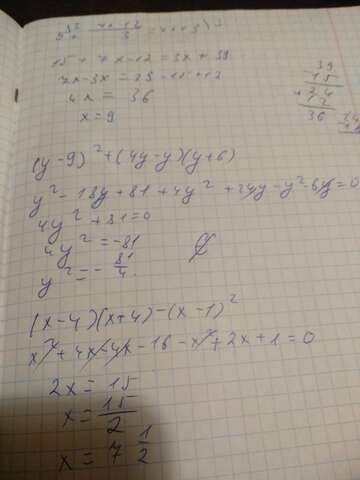 15 + 7x - 12 = 3x + 39
7x - 3x = 39 - 15 + 12
4x = 36
x = 9
39
15
24
12
36
(y - 9)² + (4y - y)(y + 6)
y² - 18y + 81 + 4y² + 24y - y² - 6y = 0
4y² + 81 = 0
4y² = -81
y² = - 81/4
(x - 4)(x + 4) - (x - 1)²
x² + 4x - 4x - 16 - x² + 2x + 1 = 0
2x = 15
x = 15/2
x = 7 1/2